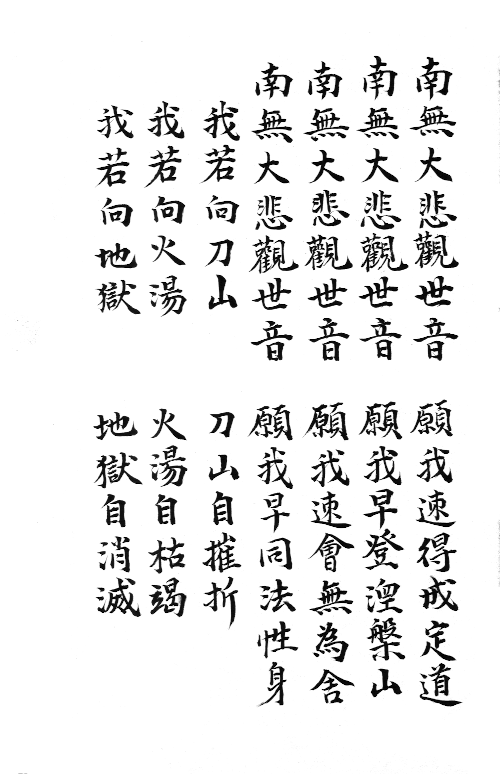 南無大悲觀世音 願我速得戒定道
南無大悲觀世音 願我早登涅槃山
南無大悲觀世音 願我速會無為舍
南無大悲觀世音 願我早同法性身
我若向刀山 刀山自摧折
我若向火湯 火湯自枯竭
我若向地獄 地獄自消滅